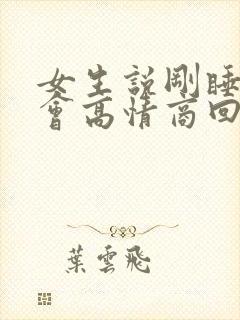 女生説剛睡
會高情商回
葉雲飛